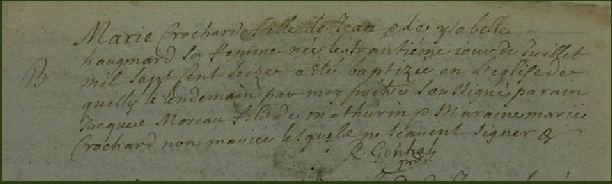 Marie Crochard fille de Jean & de ysabelle
haugmard sa femme née le trantiéme jour de Juillet
B
mil sept sent seize a été baptizée en L'eglise de
quilly le lendemain par moy prêtre soussigné parain
Jacques Moreau fils de mathurin & Maraine marie
Crochard non mariée lesquelle ne scavent signer &
R. Gouhal